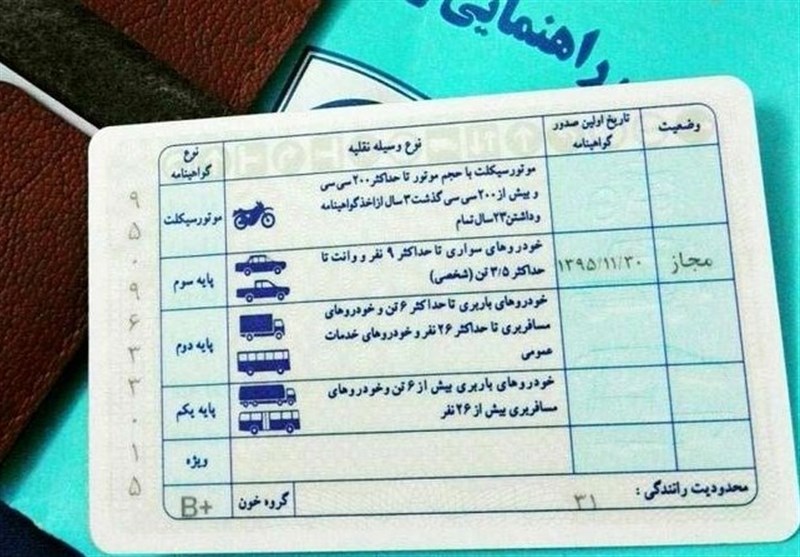 راهنمایی
وضعیت
تاریخ اولین صدور گواهینامه
نوع وسیله نقلیه
نوع گواهینامه
موتورسیکلت با حجم موتور تا حداکثر ۲۰۰ سی سی
و بیش از ۲۰۰ سی سی گذشت ۳ سال از اخذ گواهینامه
و داشتن ۲۳ سال تمام
موتورسیکلت
مجاز
۱۳۹۵/۱۱/۳۰
خودروهای سواری تا حداکثر ۹ نفر و وانت تا
حداکثر ۳/۵ تن (شخصی)
پایه سوم
خودروهای باربری تا حداکثر ۶ تن و خودروهای
مسافربری تا حداکثر ۲۶ نفر و خودروهای خدمات
عمومی
پایه دوم
خودروهای باربری بیش از ۶ تن و خودروهای
مسافربری بیش از ۲۶ نفر
پایه یکم
ویژه
محدودیت رانندگی : ۳۱
گروه خون
B+
۹۵۰۹۶۳۳۰۱۵